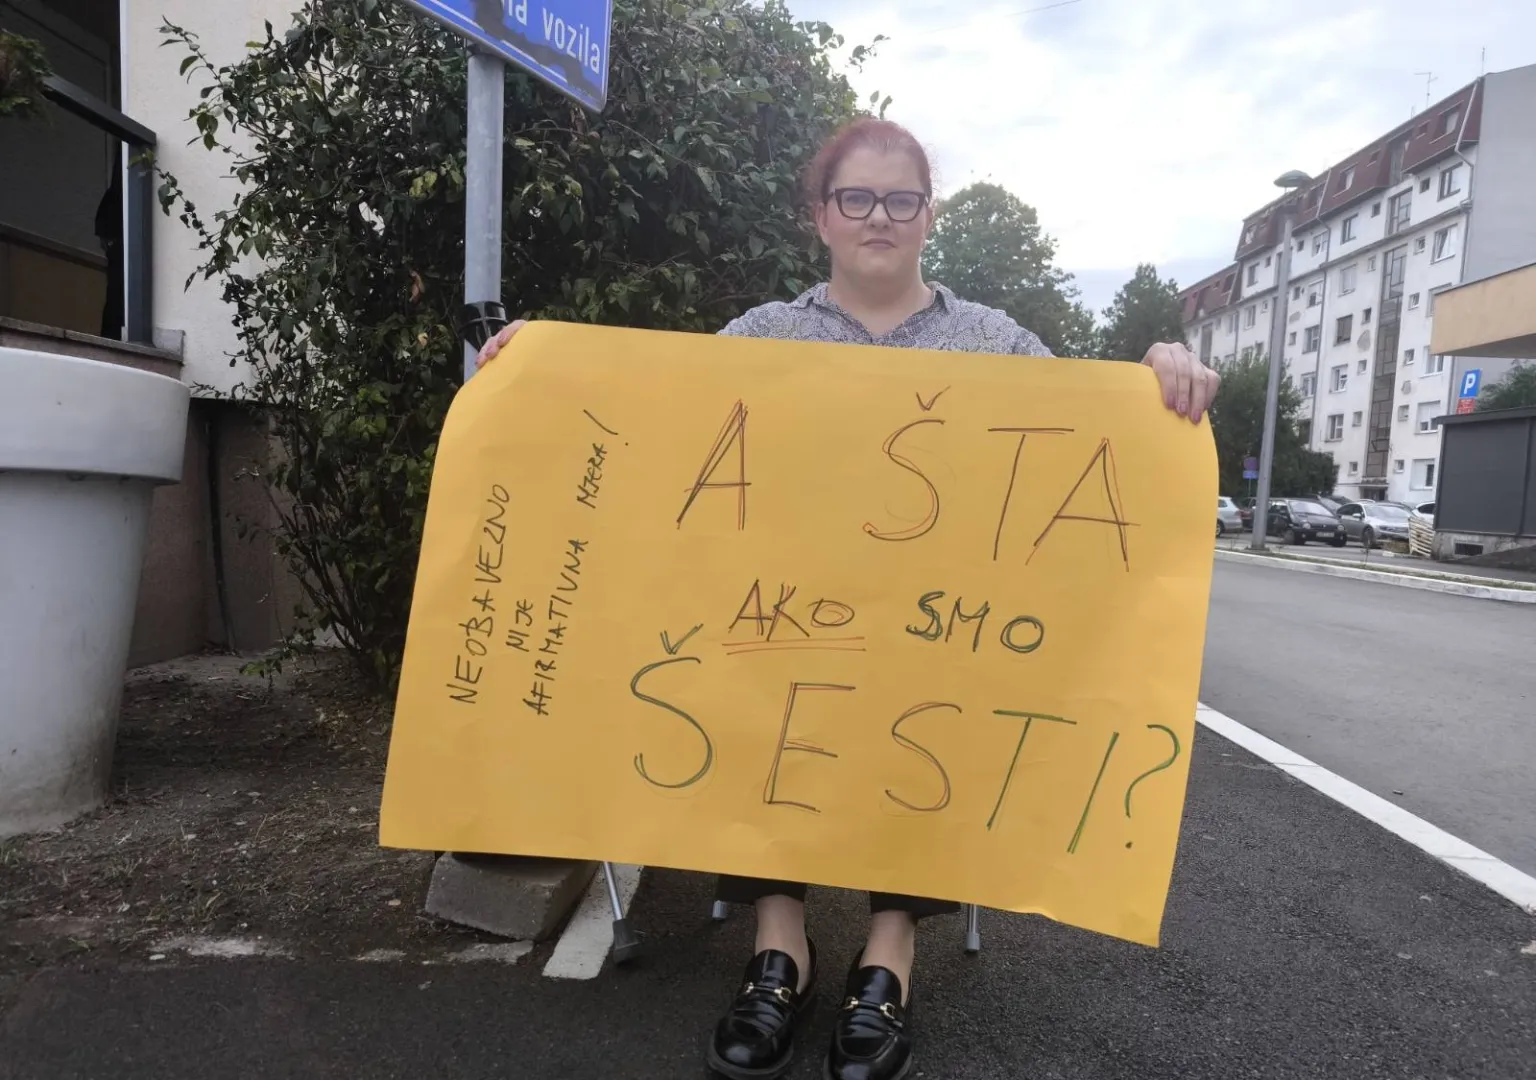 vozila
A ŠTA
AKO SMO
ŠESTI?
NEOBAVEZNO
NIJE
AFIRMATIVNA MJERA!
P